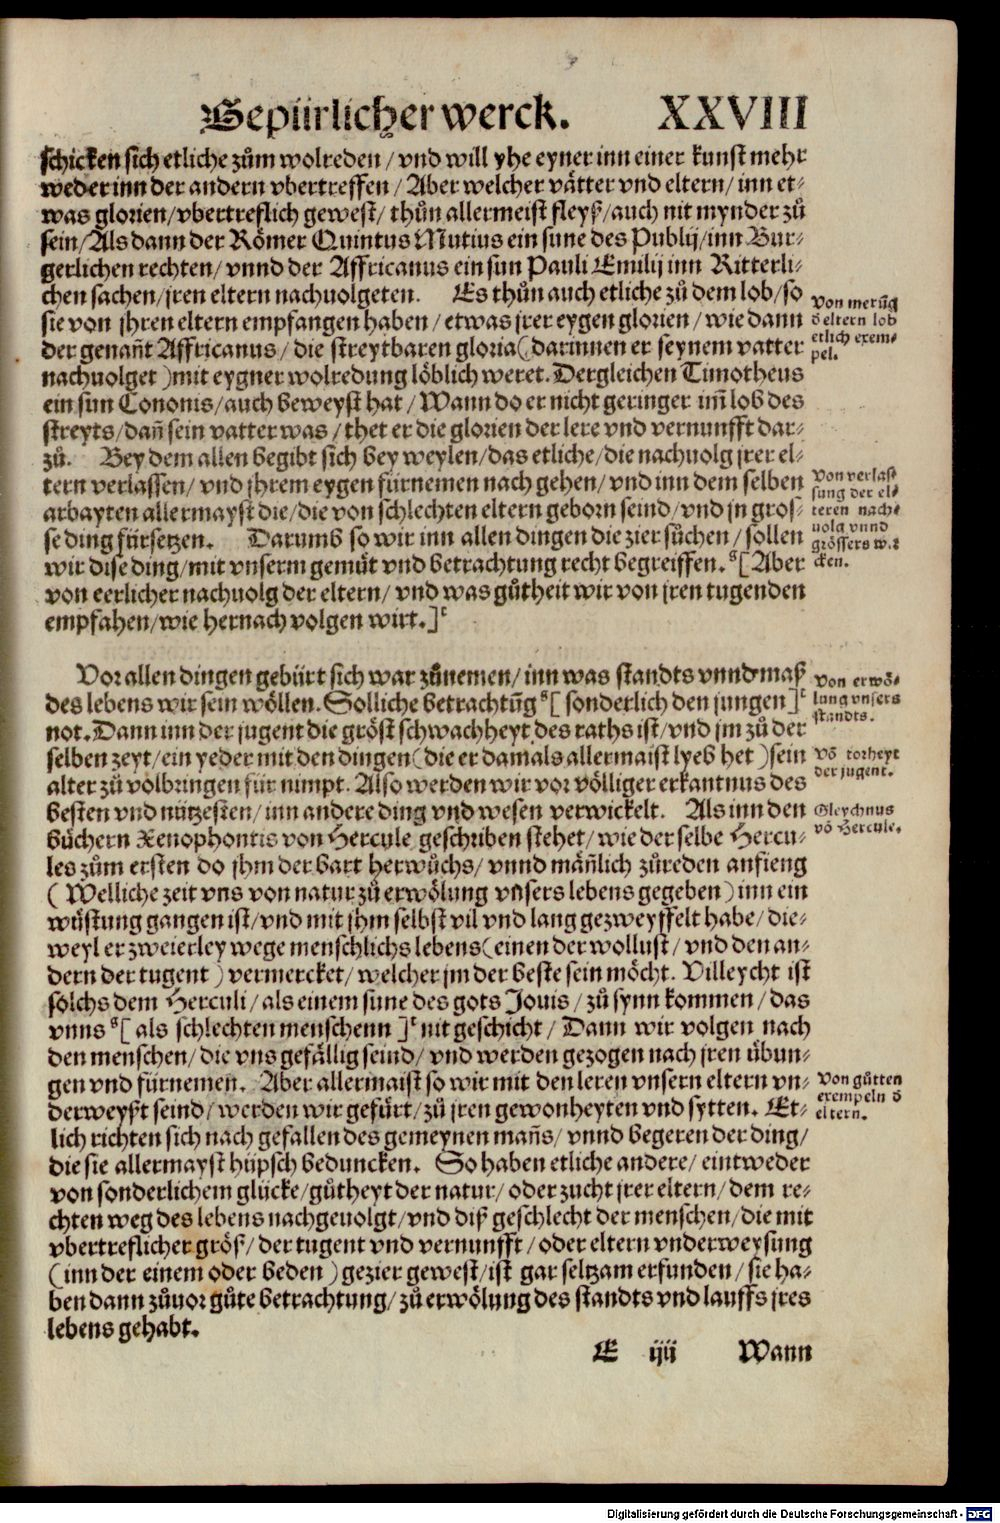 Gepürlicher werck. XXVIII
schicken sich etliche zům wolreden / vnd will yhe eyner inn einer kunst mehr
weder inn der andern vbertreffen / Aber welcher vätter vnd eltern / inn et⸗
was glorien / vbertreflich gewest / thůn allermeist fleyß / auch nit mynder zů
sein / Als dann der Römer Quintus Mutius ein sune des Publij / inn Bur⸗
gerlichen rechten / vnnd der Affricanus ein sun Pauli Emilij inn Ritterli⸗
chen sachen / jren eltern nachuolgeten. Es thůn auch etliche zů dem lob / so
sie von jhren eltern empfangen haben / etwas jrer eygen glorien / wie dann
der genañt Affricanus / die streytbaren gloria (darinnen er seynem vatter
nachuolget) mit eygner wolredung löblich weret. Dergleichen Timotheus
ein sun Cononis / auch beweyst hat / Wann do er nicht geringer im̃ lob des
streyts / dañ sein vatter was / thet er die glorien der lere vnd vernunfft dar⸗
zů. Bey dem allen begibt sich bey weylen / das etliche / die nachuolg jrer el⸗
tern verlassen / vnd jhrem eygen fürnemen nach gehen / vnd inn dem selben
arbayten allermayst die / die von schlechten eltern geborn seind / vnd jn gros⸗
se ding fürsetzen. Darumb so wir inn allen dingen die zier sůchen / sollen
wir dise ding / mit vnserm gemüt vnd betrachtung recht begreiffen. ˢ[ Aber
von eerlicher nachuolg der eltern / vnd was gůtheit wir von jren tugenden
empfahen / wie hernach volgen wirt. ]ᵗ
Von merũg
d eltern lob
etlich exem⸗
pel.
Von verlas⸗
sung der el⸗
teren nach⸗
uolg vnnd
grössers w.2
cken.
Vor allen dingen gebürt sich war zůnemen / inn was standts vnnd maß
des lebens wir sein wöllen. Solliche betrachtũg ˢ[ sonderlich den jungen ]ᵗ
not. Dann inn der jugent die gröst schwachheyt des raths ist / vnd jm zů der
selben zeyt / ein yeder mit den dingen (die er damals allermaist lyeb het) sein
alter zů volbringen für nimpt. Also werden wir vor völliger erkantnus des
besten vnd nützesten / inn andere ding vnd wesen verwickelt. Als inn den
büchern Xenophontis von Hercule geschriben stehet / wie der selbe Hercu⸗
les zům ersten do jhm der bart herwůchs / vnnd mäñlich zůreden anfieng
( Welliche zeit vns von natur zů erwölung vnsers lebens gegeben ) inn ein
wüstung gangen ist / vnd mit jhm selbst vil vnd lang gezweyffelt habe / die⸗
weyl er zweierley wege menschlichs lebens (einen der wollust / vnd den an⸗
dern der tugent) vermercket / welcher jm der beste sein möcht. Villeycht ist
solchs dem Herculi / als einem sune des gots Jouis / zů synn kommen / das
vnns ˢ[ als schlechten menschenn ]ᵗ nit geschicht / Dann wir volgen nach
den menschen / die vns gefällig seind / vnd werden gezogen nach jren übun⸗
gen vnd fürnemen. Aber allermaist so wir mit den leren vnsern eltern vn⸗
derweyßt seind / werden wir gefürt / zů jren gewonheyten vnd sytten. Et⸗
lich richten sich nach gefallen des gemeynen mañs / vnnd begeren der ding /
die sie allermayst hüpsch beduncken. So haben etliche andere / eintweder
von sonderlichem glücke / gůtheyt der natur / oder zucht jrer eltern / dem re⸗
chten weg des lebens nachgeuolgt / vnd diß geschlecht der menschen / die mit
vbertreflicher größ / der tugent vnd vernunfft / oder eltern vnderweysung
(inn der einem oder beden) gezier gewest / ist gar seltzam erfunden / sie ha⸗
ben dann zůuor gůte betrachtung / zů erwölung des standts vnd lauffs jres
lebens gehabt.
Von erwö⸗
lung vnsers
standts.
Vō torheyt
der jugent.
Gleychnus
vō Hercule.
Von gůtten
exempeln d
eltern.
E iiij Wann
Digitalisierung gefördert durch die Deutsche Forschungsgemeinschaft - DFG